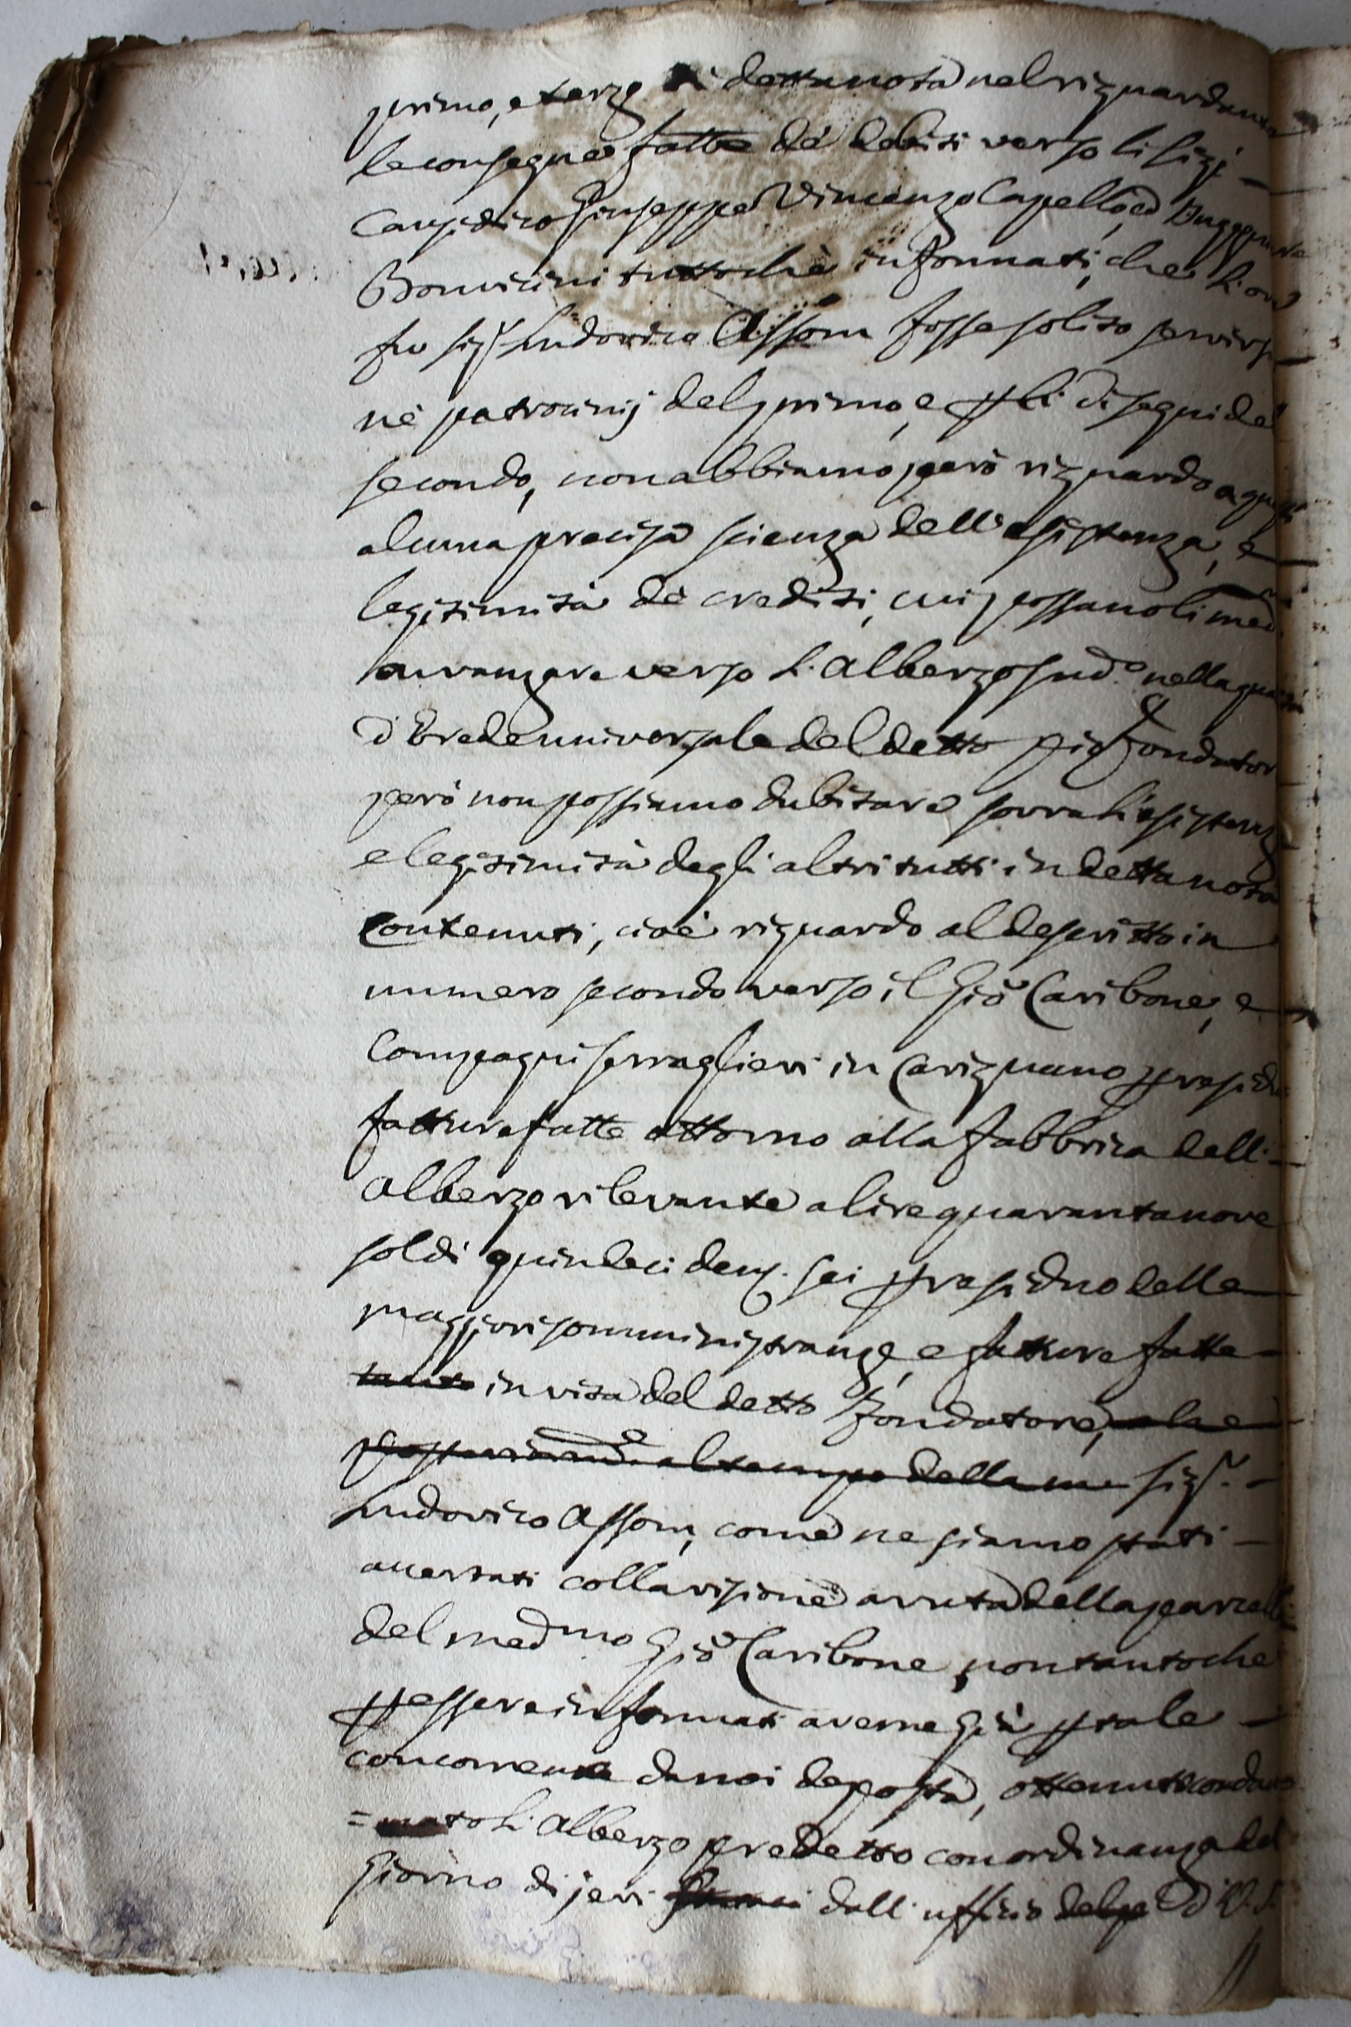 primo, e terzo di detta nota nel riguardante
le consegne fatte de debiti verso li sigj
Causidico Giuseppe Vincenzo Capello, ed
Bonvicini tuttoche informati, che l'ora
fu sigr Ludovico Assom fosse solito servirsi
ne patrocinij del primo, e pli di segui del
secondo, non abbiamo però riguardo a questi
alcuna precisa scienza dell'esistenza, e
legitimità de crediti, cui possano li med.
avanzare verso l'Albergo sudo nella qualità
d'Erede universale del detto pio fondatore
però non possiamo dubitare sovra l'esistenza
e legitimità degli altri tutti in detta nota
contenuti, cioè riguardo al descritto in
numero secondo verso il Gio Caribone, e
Compagni serraglieri in Carignano presiduo
fatture fatte attorno alla fabbrica dell'
Albergo rilevante a lire quarantanove
soldi quindeci denj. sei presiduo delle
maggiori somministranze, e fatture fatte
in vita del detto fondatore,
al tempo della sigr.
Ludovico Assom, come ne siamo stati
accertati colla visione avuta della parcella
del medmo Gio Caribone, non tanto che
pessere informati averne già ptale
concorrente da noi deposta, ottenuto condan
=nato l'Albergo predetto con ordinanza del
giorno di jeri dall'ufficio d'V.S.